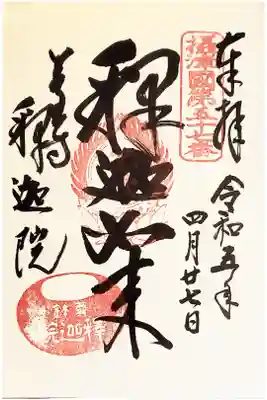 奉拝
令和五年
四月廿七日
摂津國第五十七番
釋迦如来
尊鉢
釋迦院
尊鉢
釋迦院